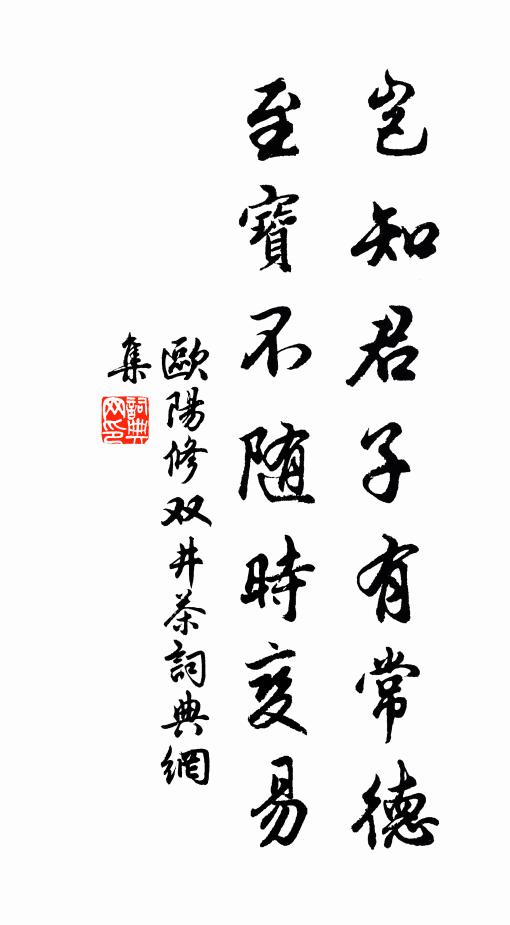 岂知君子有常德
至寶不随時变易
歐陽修双井茶詞典網
集
詞典
网印